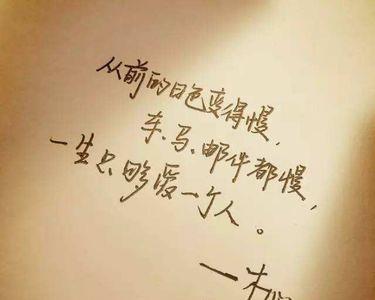 从前的日色变得慢,
车、马、邮件都慢,
一生只够爱一个人。
—木